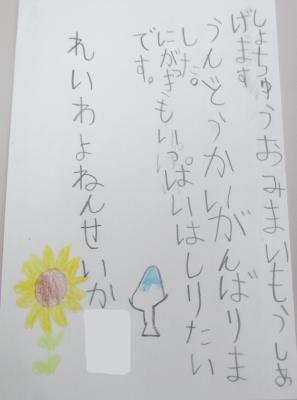 しょちゅうおみまいもうしあ
げます
うんどうかいがんばりま
した。
にがっきもいっぱいはしりたい
です。
れいわよねんせいか